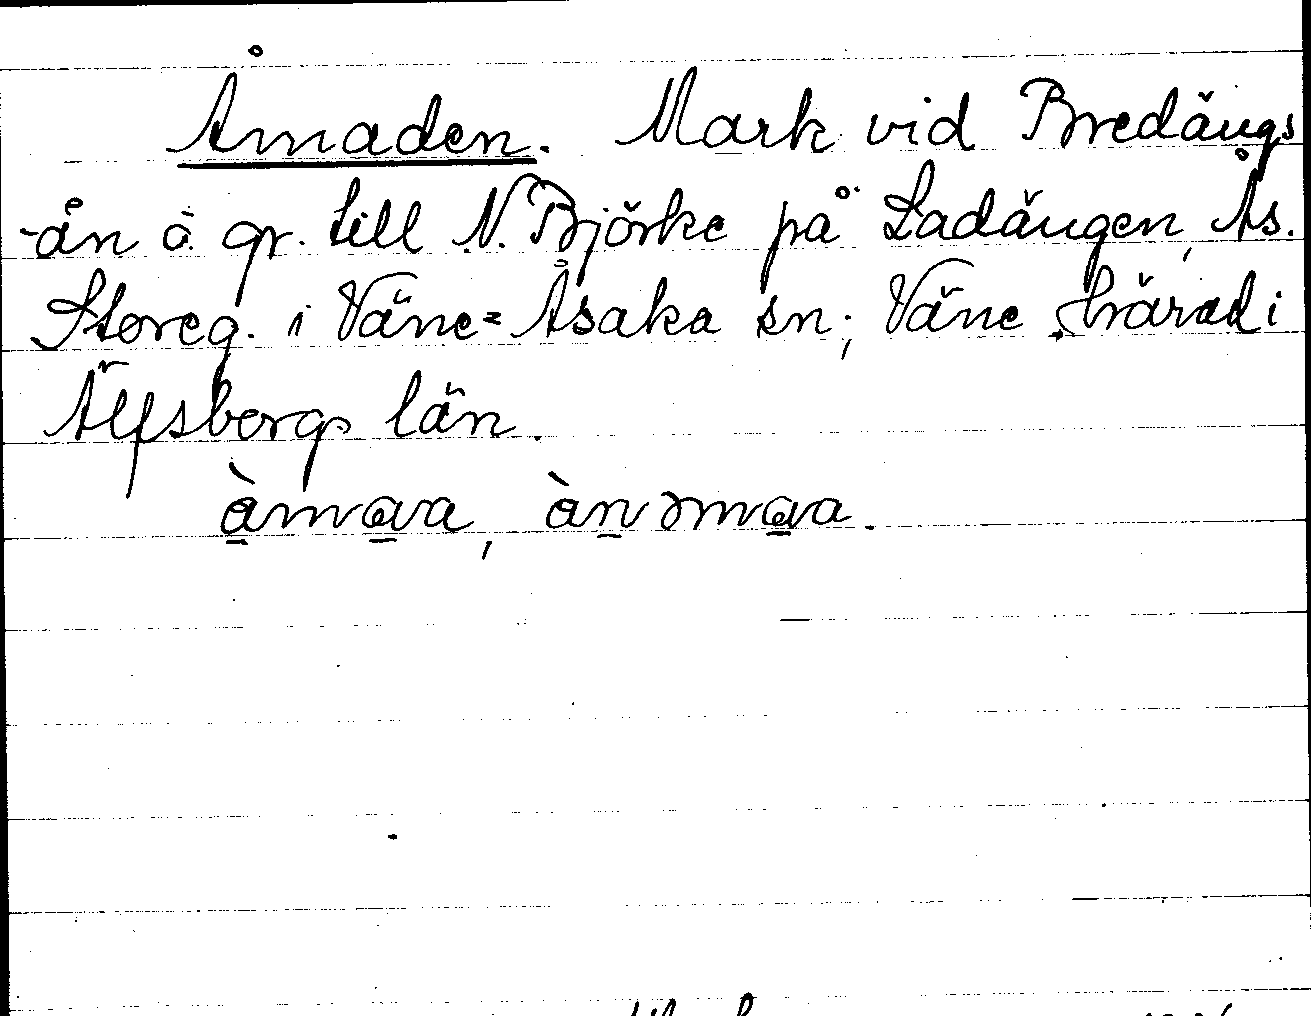 Åmaden. Mark vid Bredängs
-ån å gr. till N. Björke på Ladängen, Ås.
Storeg. i Väne-Åsaka sn; Väne härad i
Älfsborgs län.